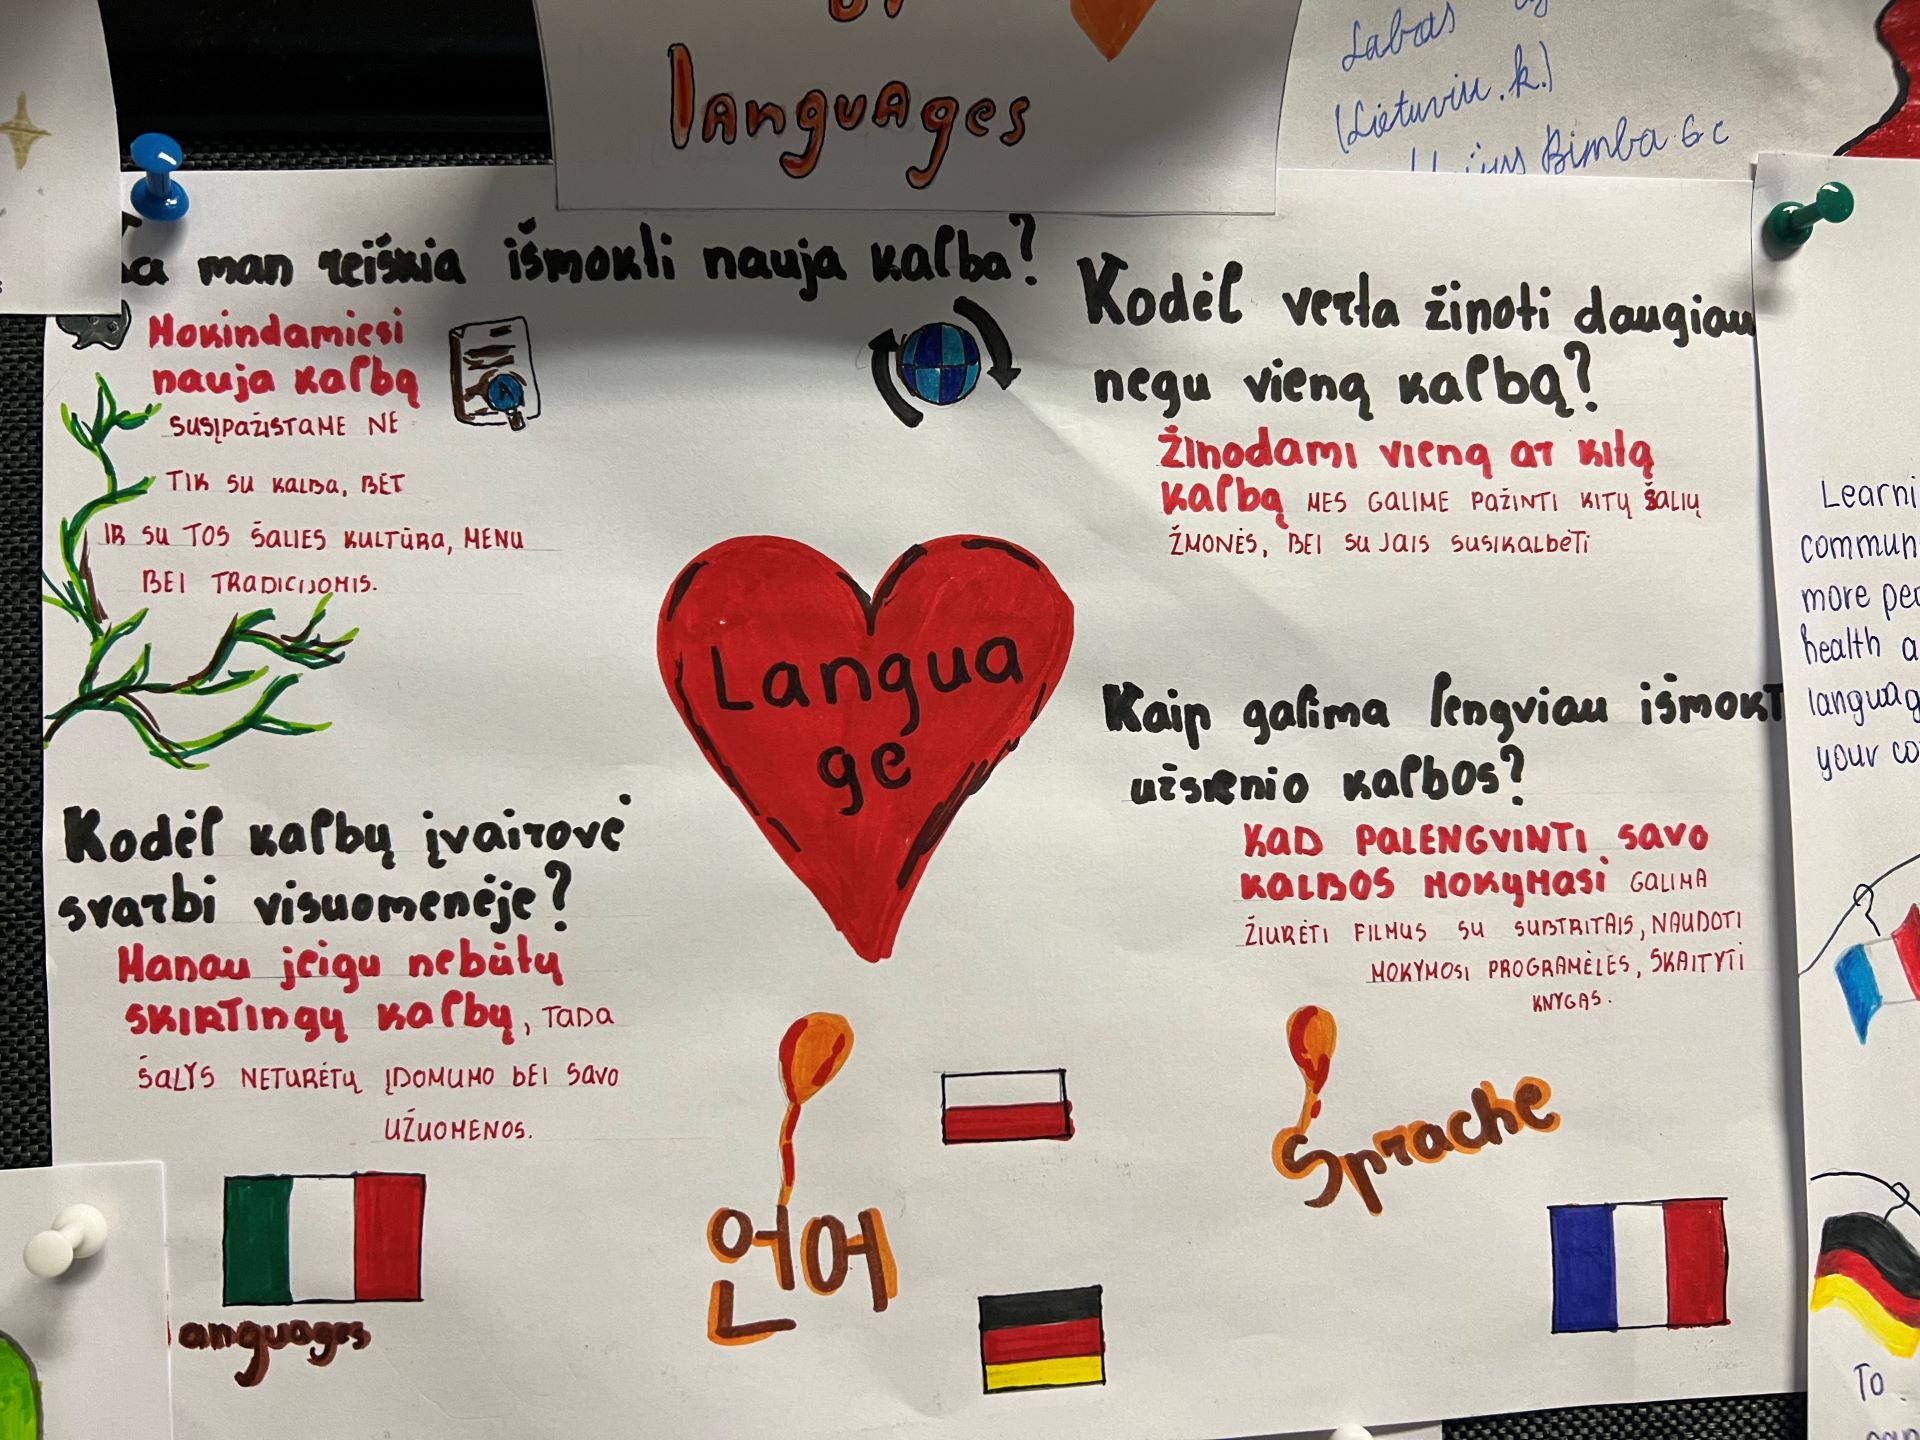 languages
Labas
(Lietuvių.k.)
Bimba 6c
man reiškia išmokti nauja kalba?
Mokindamiesi
nauja kalbą
SUSĮPAŽISTAME NE
TIK SU KALBA, BET
IR SU TOS ŠALIES KULTŪRA, MENU
BEI TRADICIJOMIS.
Kodėl verta žinoti daugiau
negu vieną kalbą?
Žinodami vieną ar kitą
kalbą MES GALIME PAŽINTI KITŲ ŠALIŲ
ŽMONĖS, BEI SU JAIS SUSIKALBĖTI
Langua
ge
Kaip galima lengviau išmokt
užsienio kalbos?
KAD PALENGVINTI SAVO
KALBOS MOKYMASI GALIMA
ŽIURĖTI FILMUS SU SUBTRITAIS, NAUDOTI
MOKYMOSI PROGRAMĖLĖS, SKAITYTI
KNYGAS.
Kodėl kalbų įvairovė
svarbi visuomenėje?
Manau jeigu nebūtų
skirtingų kalbų, TADA
ŠALYS NETURĖTŲ ĮDOMUMO BEI SAVO
UŽUOMENOS.
언어
Sprache
anguages
Learni
commun
more peo
health a
languag
your co
To